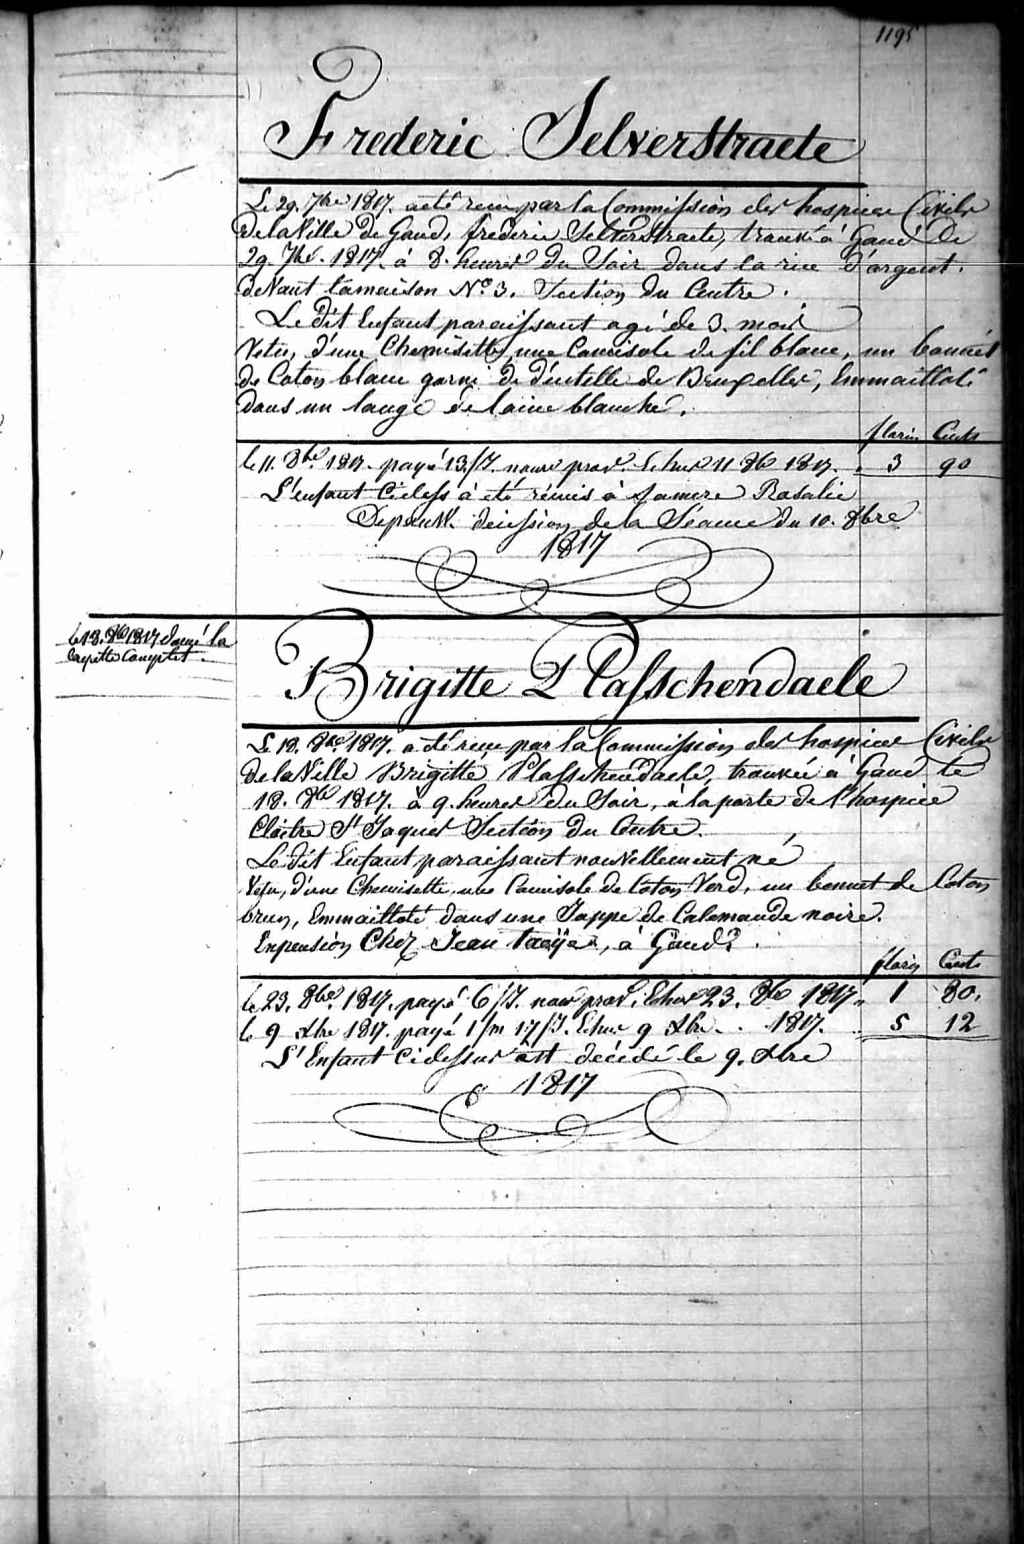 1195
Frederic Selverstraete
Le 29. 7bre 1817. a été recu par la Commission des hospices Civils
de la Ville de Gand, frederic Selverstraete, trouvé à Gand le
29. 7bre. 1817. à 8. heures du Soir dans la rue d'argent.
deVant la maison No 3. Section du Centre.
Le dit Enfant paraissant agé de 3. mois
Vetu, d'une Chemisette, une Camisole de fil blanc, un bonnet
de Coton blanc garni de d'entelle de Bruxelles, Emmailloté
dans un lange de laine blanche.
florins Cents
le 11. 8bre. 1817. payé 13/J. nourr prov. Echue 11 8bre 1817. 3 90
L'enfant Cidess à été rémis à sa mere Rosalie
decission de la Séance du 10. 8bre
1817
le 18. 8bre 1817 donné la
Layette Complet.
Brigitte Plasschendaele
Le 18. 8bre. 1817. a été recue par la Commission des hospices Civils
de la Ville Brigitte Plasschendaele, trouvée à Gand le
18. 8bre 1817. à 9. heures du Soir, à la porte de l'hospice
Cloitre St Jaques Section du Centre.
Le dit Enfant paraissant nouVellement né
Vetu, d'une Chemisette, une Camisole de Coton Verd, un bonnet de Coton
brun, Emmailloté dans une Jappe de Calemande noire.
Enpension Chez Jean à Gand
florins Cents
le 23. 8bre. 1817. payé 6/J. nour prov. Echue 23. 8bre 1817. 1 80.
le 9 Xbre 1817. payé 1/m 17/J. Echue 9 Xbre. . 1817. 5 12
L'Enfant Cidessus est décédé le 9. Xbre
1817